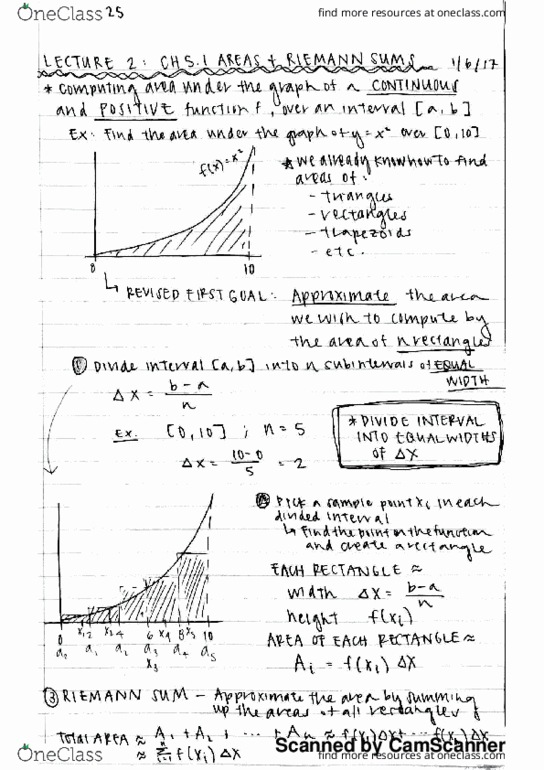 OneClass 25
find more resources at oneclass.com
LECTURE 2: CH 5.1 AREAS + RIEMANN SUMS 1/6/17
* computing area under the graph of a CONTINUOUS
and POSITIVE function f, over an interval [a,b]
EX: Find the area under the graph of y = x² over [0,10]
f(x) = x²
0 10
* we already know how to find
areas of:
- triangles
- rectangles
- trapezoids
- etc.
↳ REVISED FIRST GOAL: Approximate the area
we wish to compute by
the area of n rectangles
① Divide interval [a,b] into n subintervals of EQUAL
WIDTH
Δx = b-a / n
Ex. [0,10] ; n = 5
Δx = 10-0 / 5 = 2
* DIVIDE INTERVAL
INTO EQUAL WIDTHS
OF Δx
② Pick a sample point xᵢ in each
divided interval
↳ Find the point on the function
and create a rectangle
EACH RECTANGLE ≈
width Δx = b-a / n
height f(xᵢ)
AREA OF EACH RECTANGLE ≈
Aᵢ = f(xᵢ) Δx
0 x₁ 2 x₂ 4 6 x₄ 8 x₅ 10
a₁ a₂ x₃ a₄ a₅
③ RIEMANN SUM - Approximate the area by summing
up the areas of all rectangles
TOTAL AREA ≈ A₁ + A₂ + ... + Aₙ ≈ f(x₁)Δx + ... f(xᵢ)Δx
≈ Σ f(xᵢ) Δx
Scanned by CamScanner
OneClass
find more resources at oneclass.com